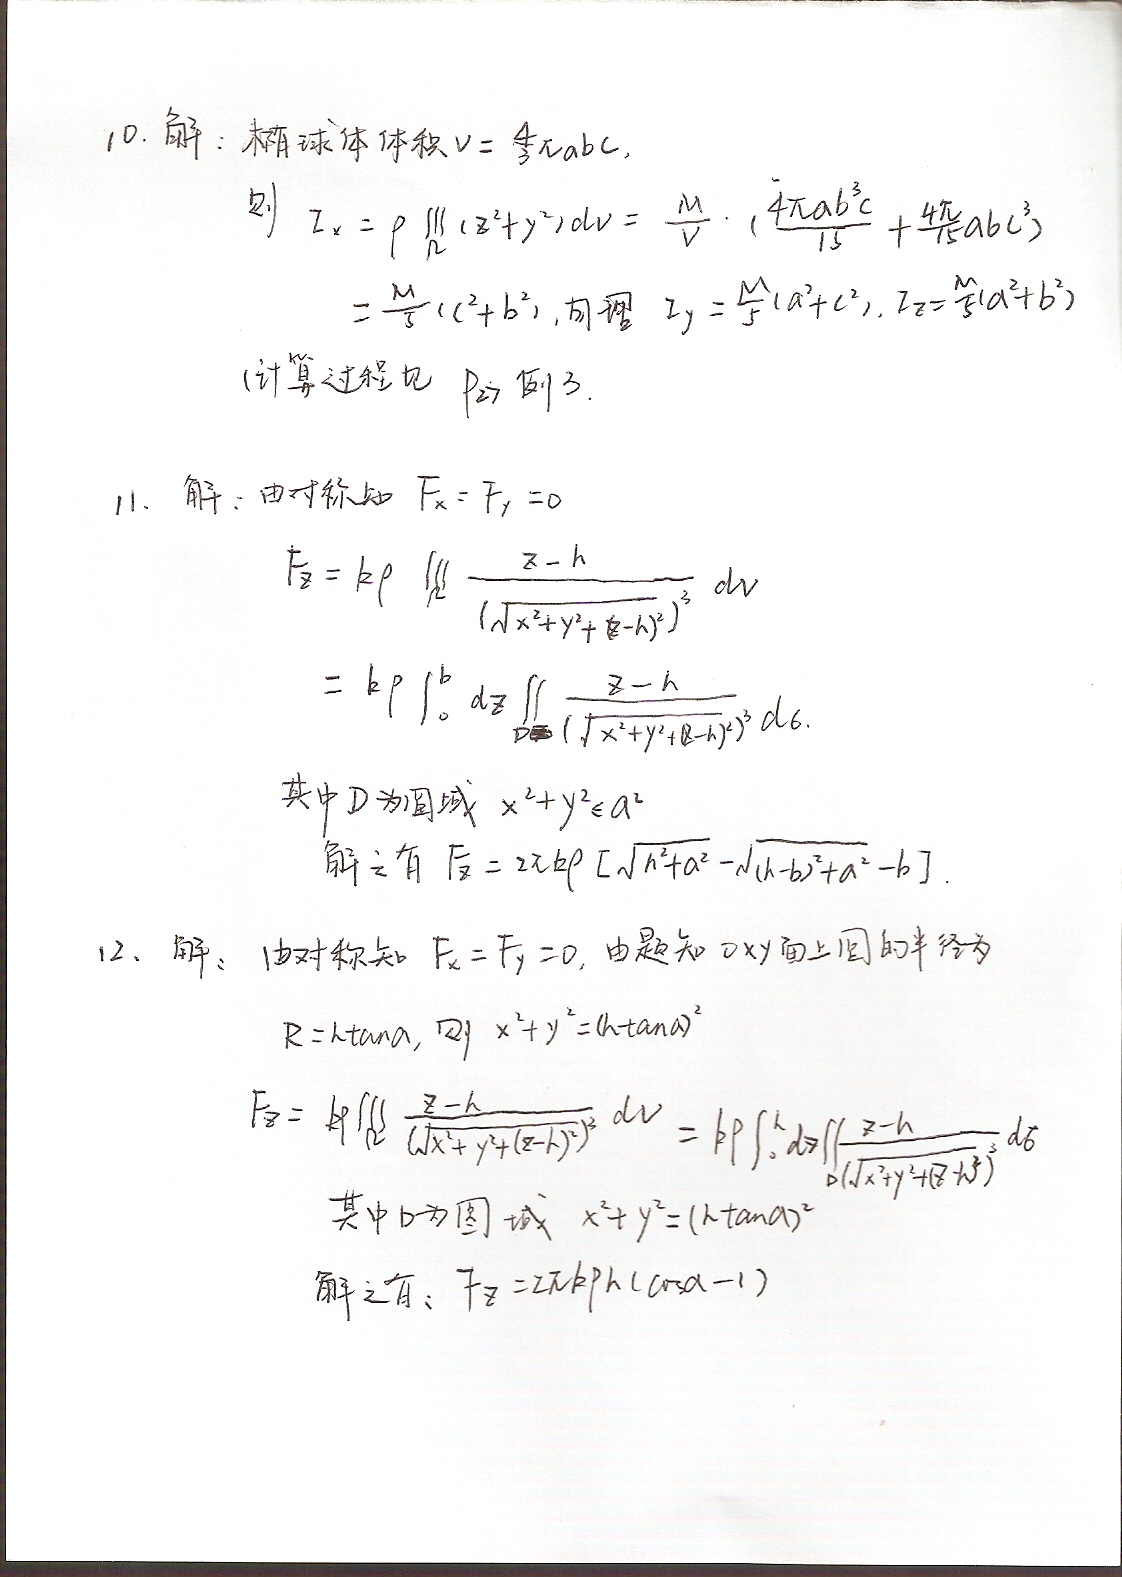 10. 解：椭球体体积 V = 4/3 πabc,
则 I_x = ρ∭_Ω (z²+y²)dv = M/V · (4πab³c/15 + 4π/15 abc³)
= M/5 (c²+b²), 同理 I_y = M/5 (a²+c²), I_z = M/5 (a²+b²)
(计算过程见 P₂₇ 例3.
11. 解：由对称知 F_x = F_y = 0
F_z = kρ ∭_Ω (z-h)/(√(x²+y²+(z-h)²))³ dv
= kρ ∫₀ᵇ dz ∬_D (z-h)/(√(x²+y²+(z-h)²))³ dσ.
其中D为圆域 x²+y²≤a²
解之有 F_z = 2πkρ [√(h²+a²) - √((h-b)²+a²) - b].
12、解：由对称知 F_x = F_y = 0, 由题知 oxy面上圆的半径为
R = htanα, 则 x²+y² = (htanα)²
F_z = kρ∭_Ω (z-h)/(√(x²+y²+(z-h)²))³ dv = kρ∫₀ʰ dz∬_D (z-h)/(√(x²+y²+(z-h)²))³ dσ
其中D为圆域 x²+y² = (htanα)²
解之有：F_z = 2πkρh(cosα-1)